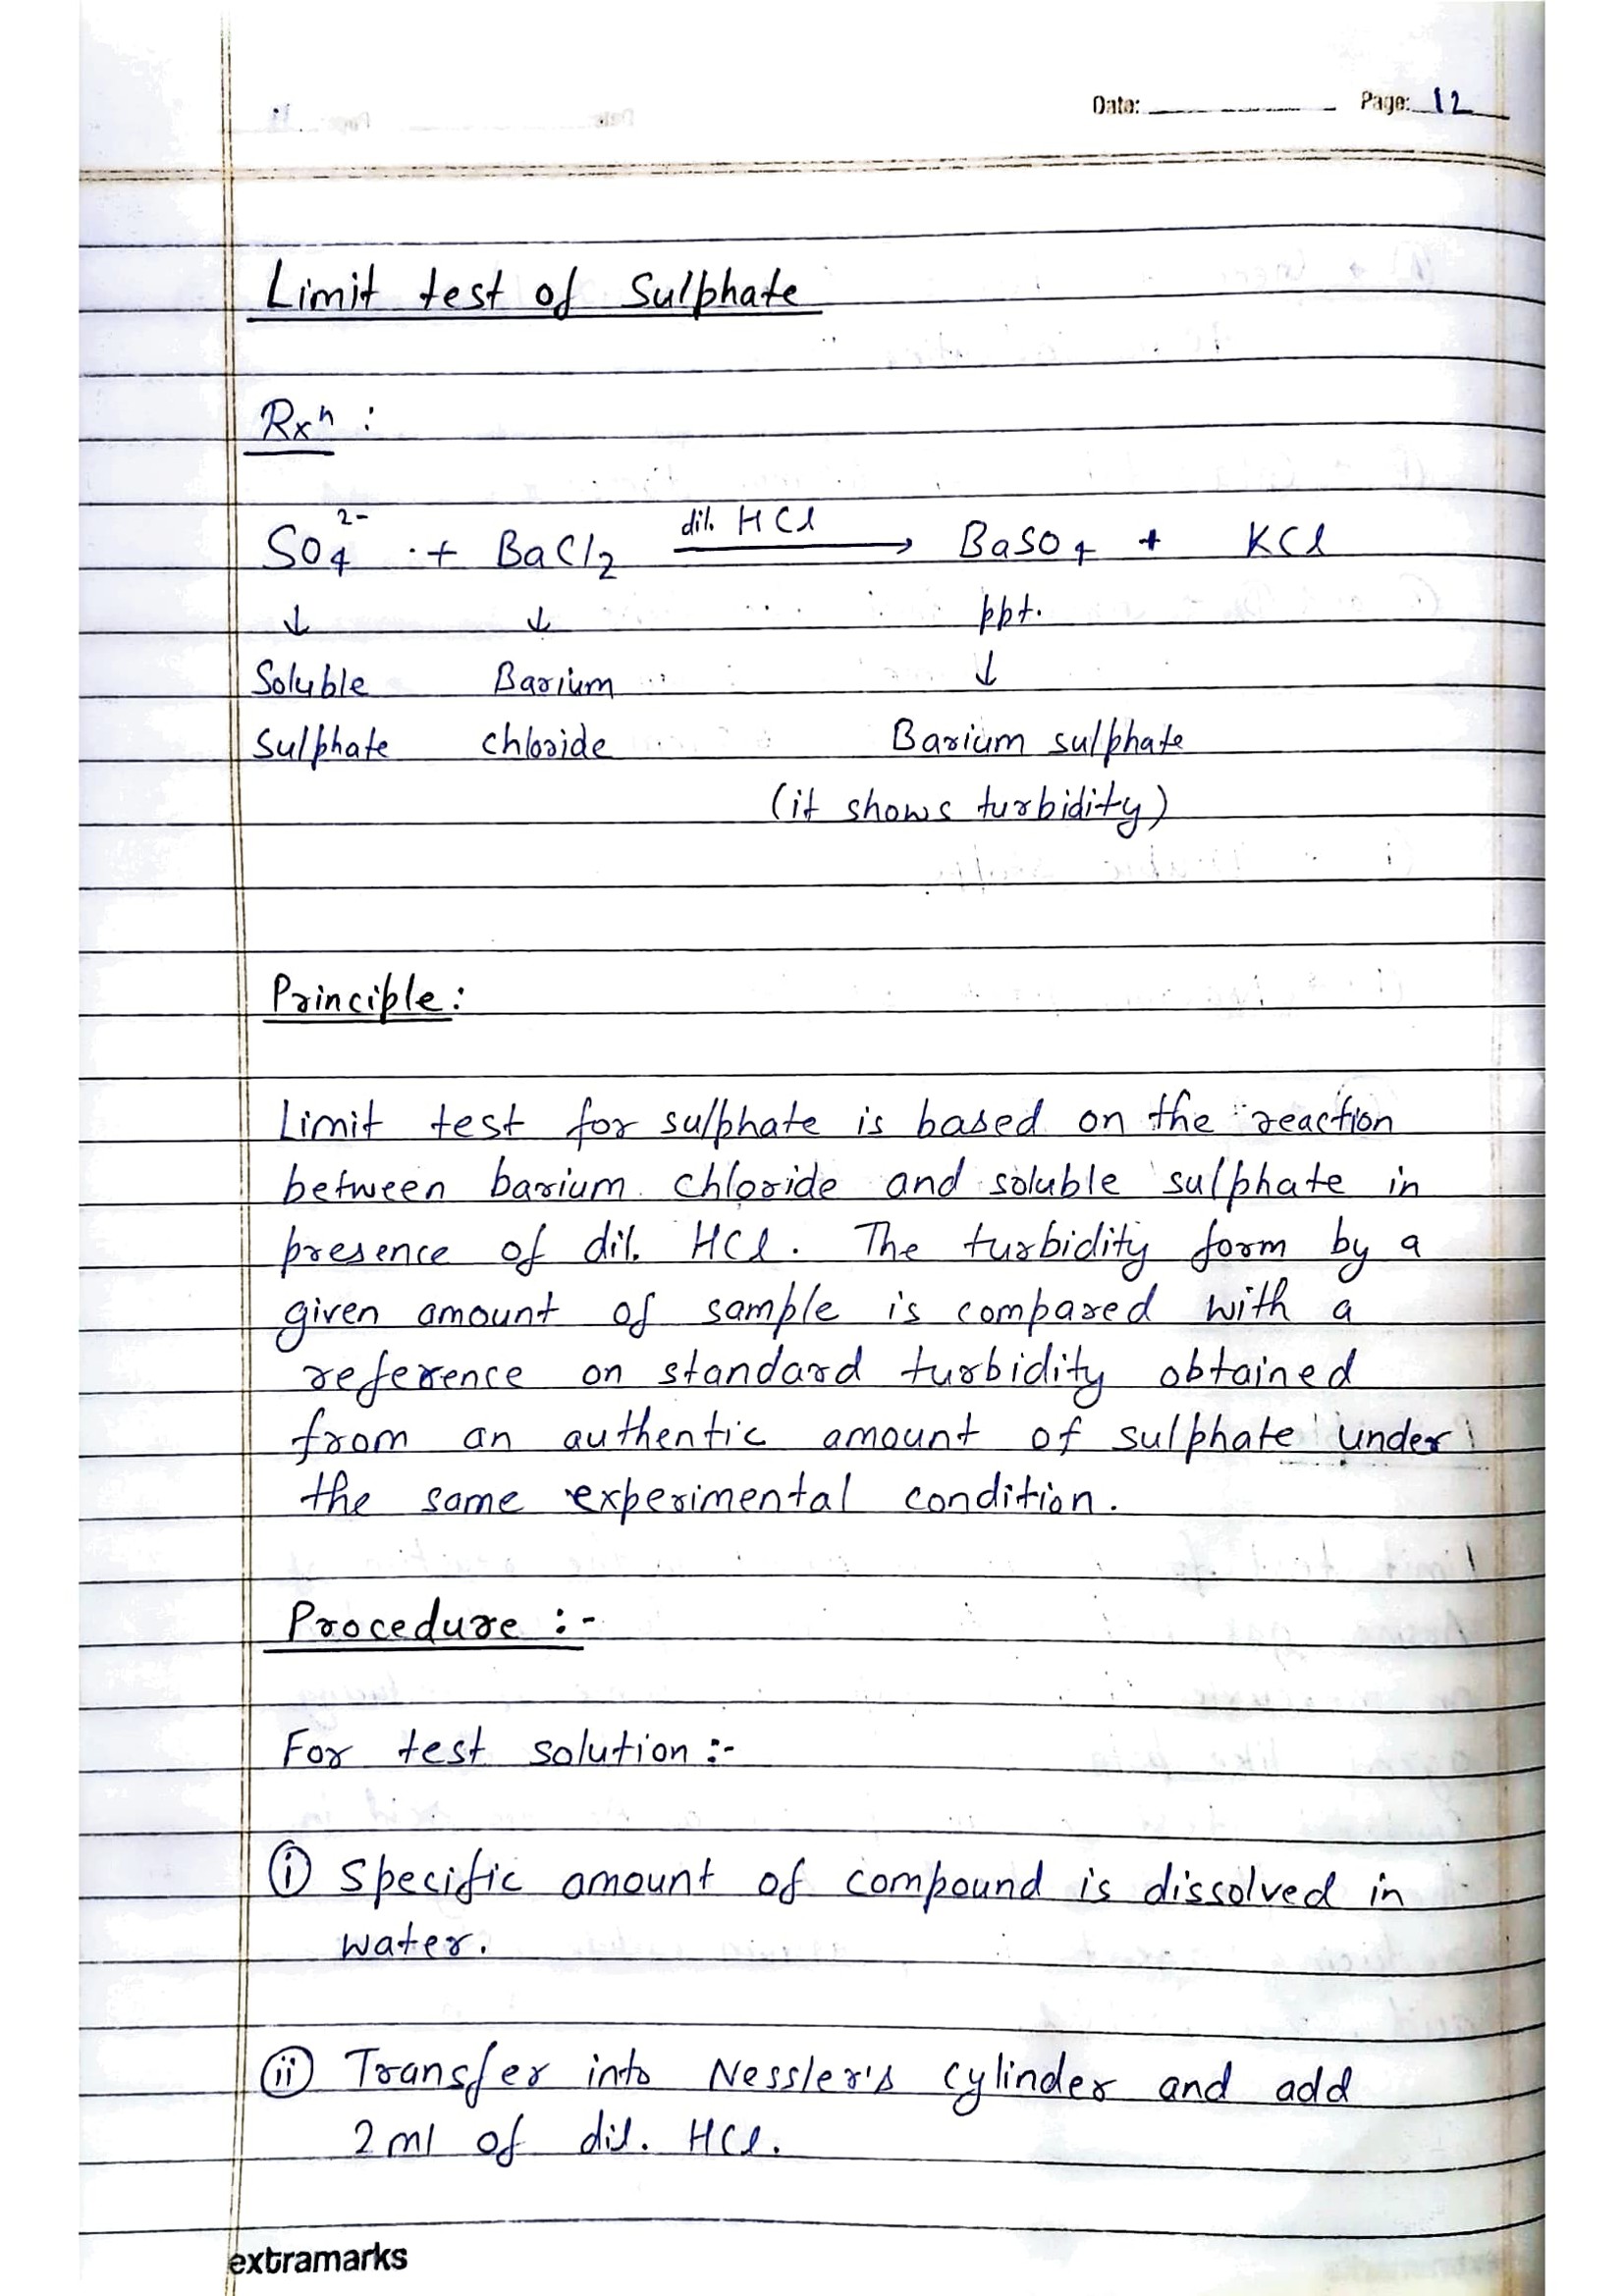 Date: ________ Page: 12
Limit test of Sulphate
Rxⁿ :
SO₄²⁻ + BaCl₂ dil. HCl → BaSO₄ + KCl
↓ ↓ ppt.
Soluble Barium ↓
Sulphate chloride Barium sulphate
(it shows turbidity)
Principle:
Limit test for sulphate is based on the reaction
between barium chloride and soluble sulphate in
presence of dil. HCl. The turbidity form by a
given amount of sample is compared with a
reference on standard turbidity obtained
from an authentic amount of sulphate under
the same experimental condition.
Procedure :-
For test solution :-
(i) Specific amount of compound is dissolved in
water.
(ii) Transfer into Nessler's cylinder and add
2 ml of dil. HCl.
extramarks